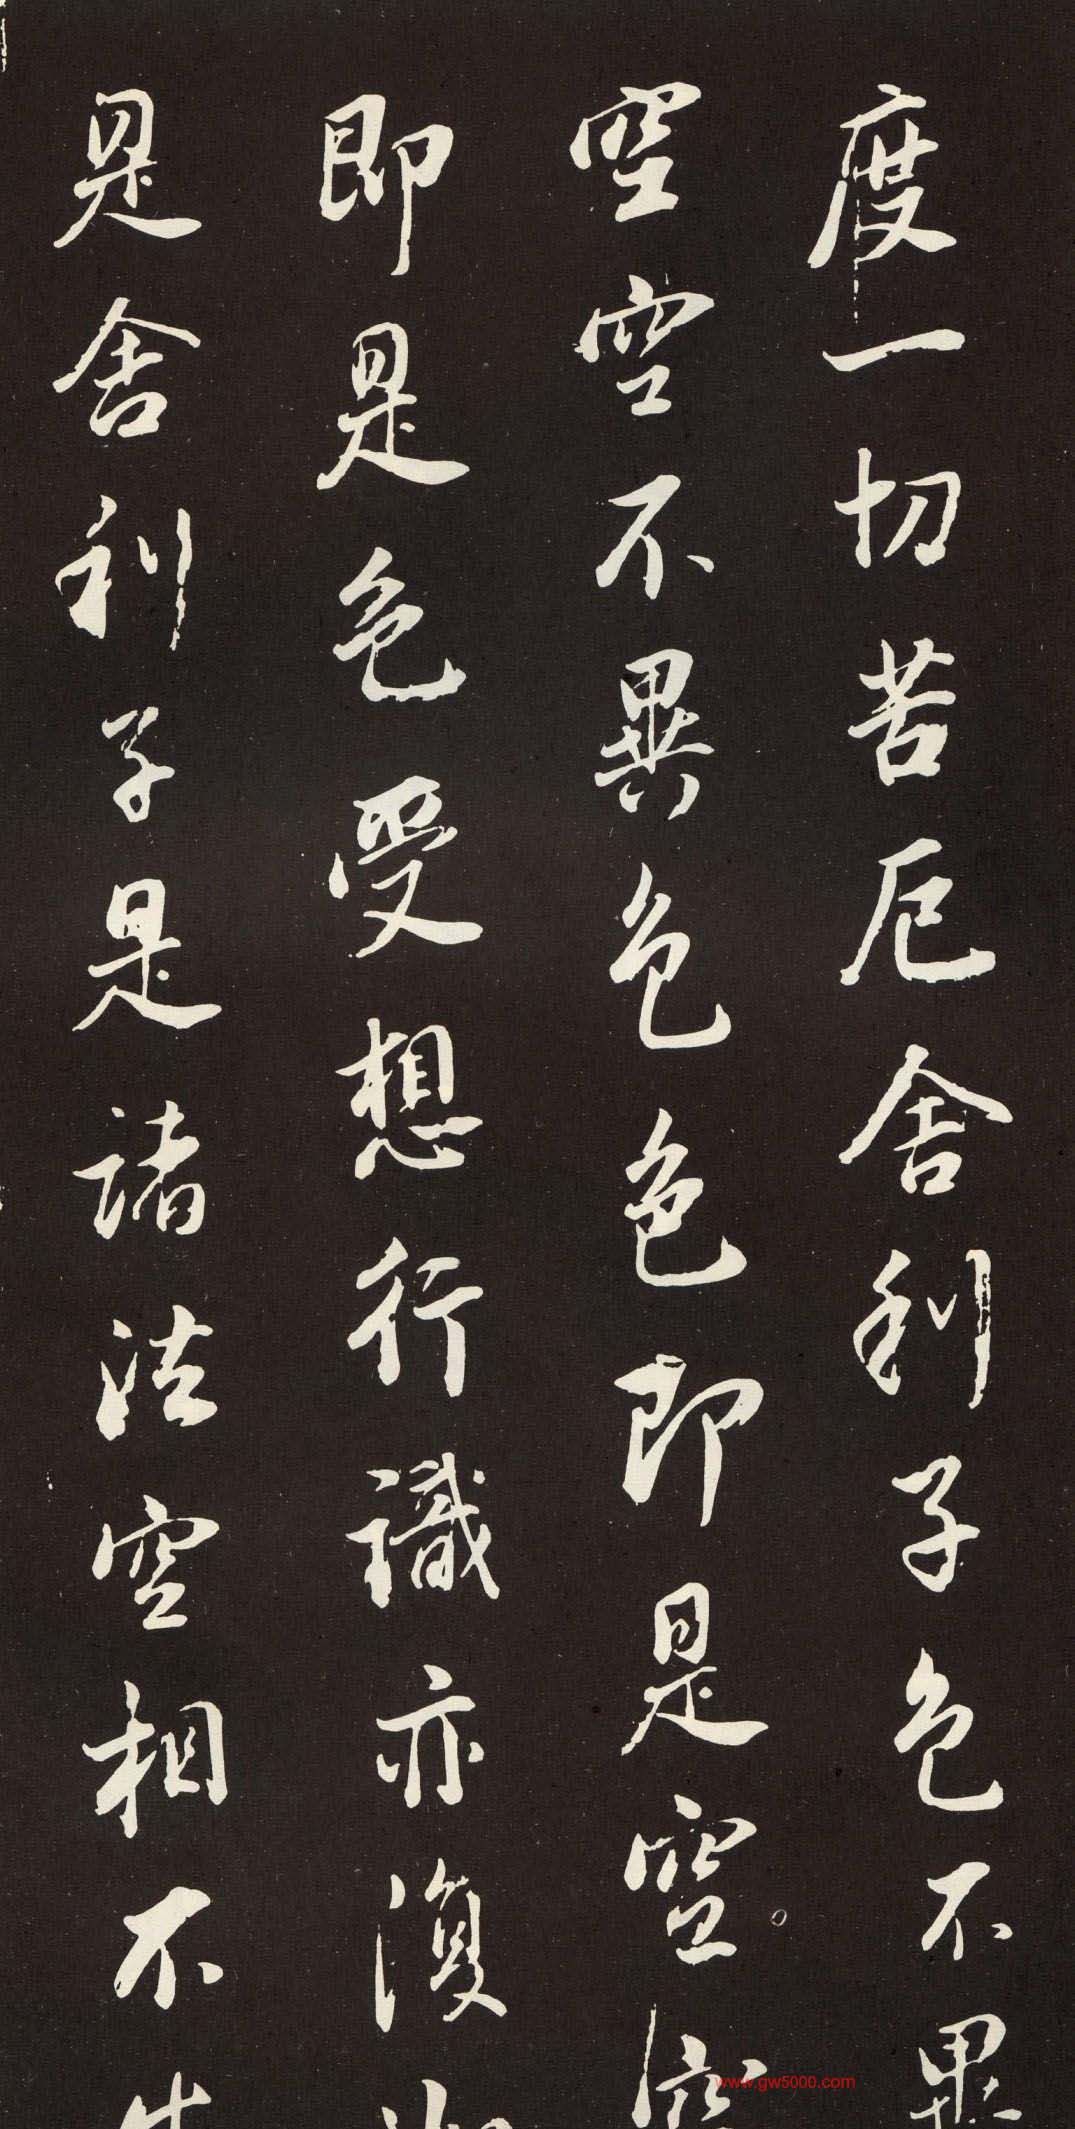 度一切苦厄舍利子色不異
空空不異色色即是空
即是色受想行識亦復如
是舍利子是諸法空相不生
www.gw5000.com